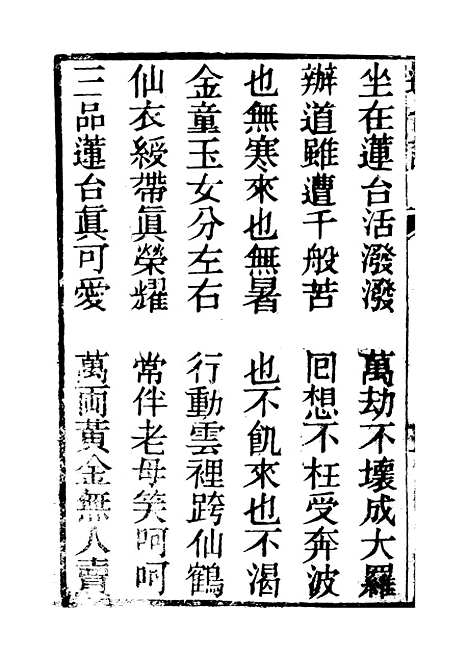 坐在蓮台活潑潑　萬劫不壞成大羅
辦道雖遭千般苦　回想不枉受奔波
也無寒來也無暑　也不飢來也不渴
金童玉女分左右　行動雲裡跨仙鶴
仙衣綬帶眞榮耀　常伴老母笑呵呵
三品蓮台眞可愛　萬両黃金無人賣